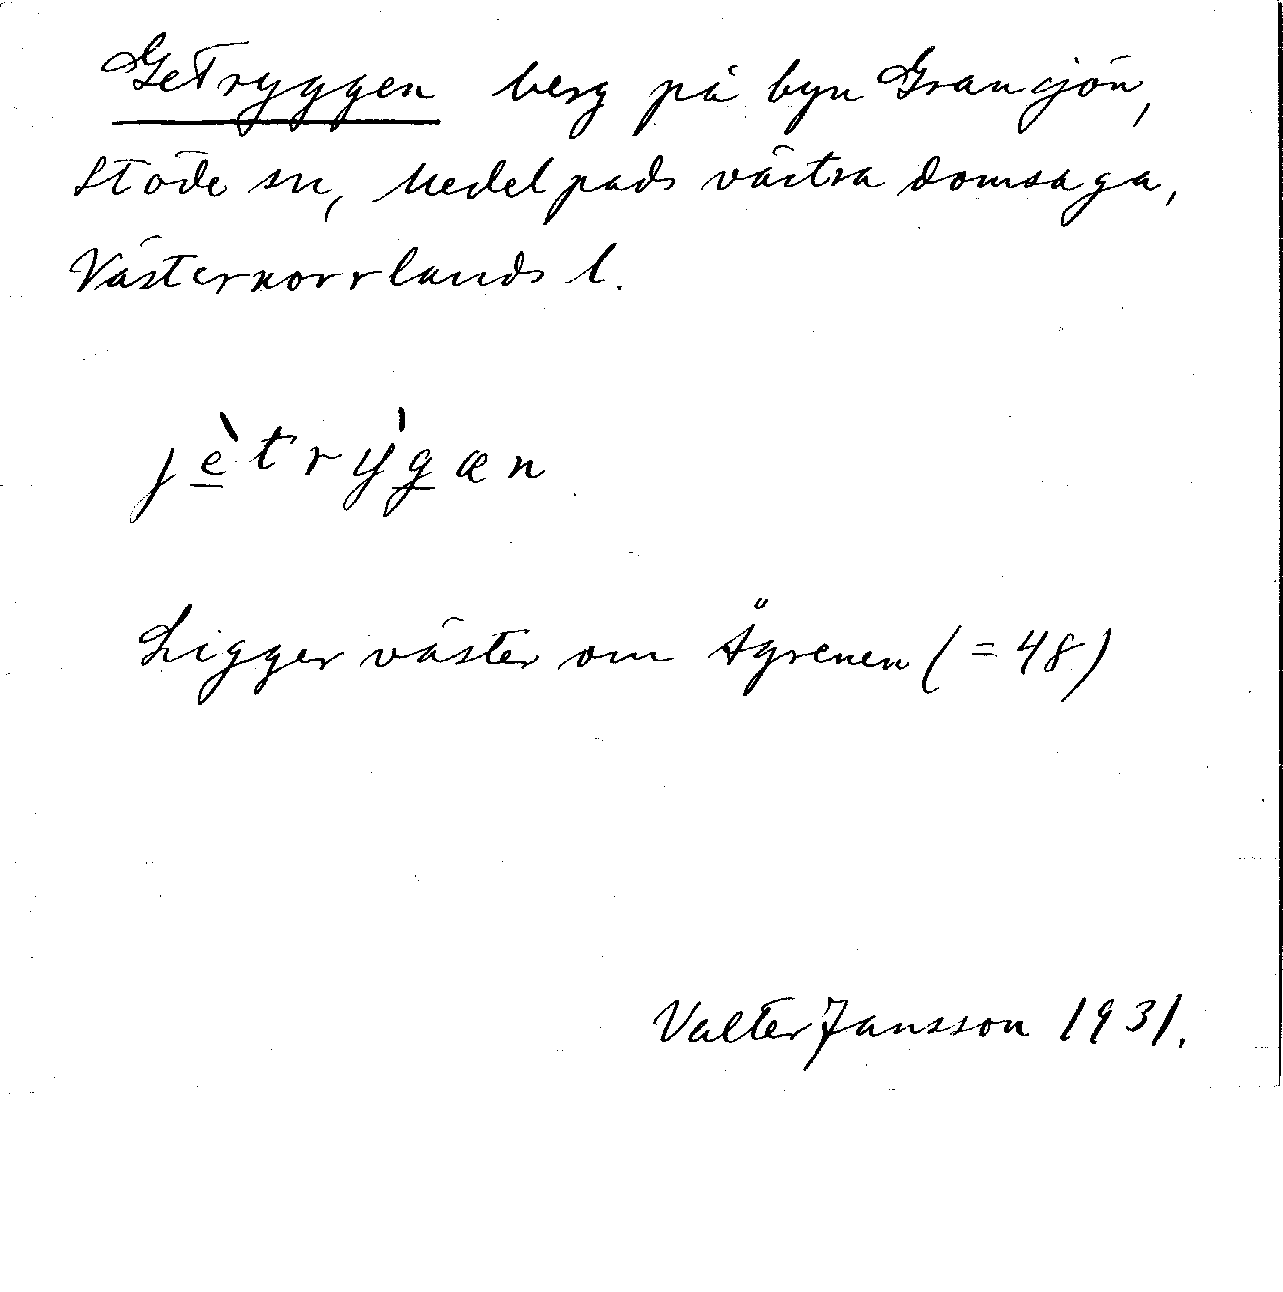 Getryggen berg på byn Gransjön,
Stöde sn, Medelpads västra domsaga,
Västernorrlands l.
jètrỳgæn
Ligger väster om Ägrenen (= 48)
Valter Jansson 1931.